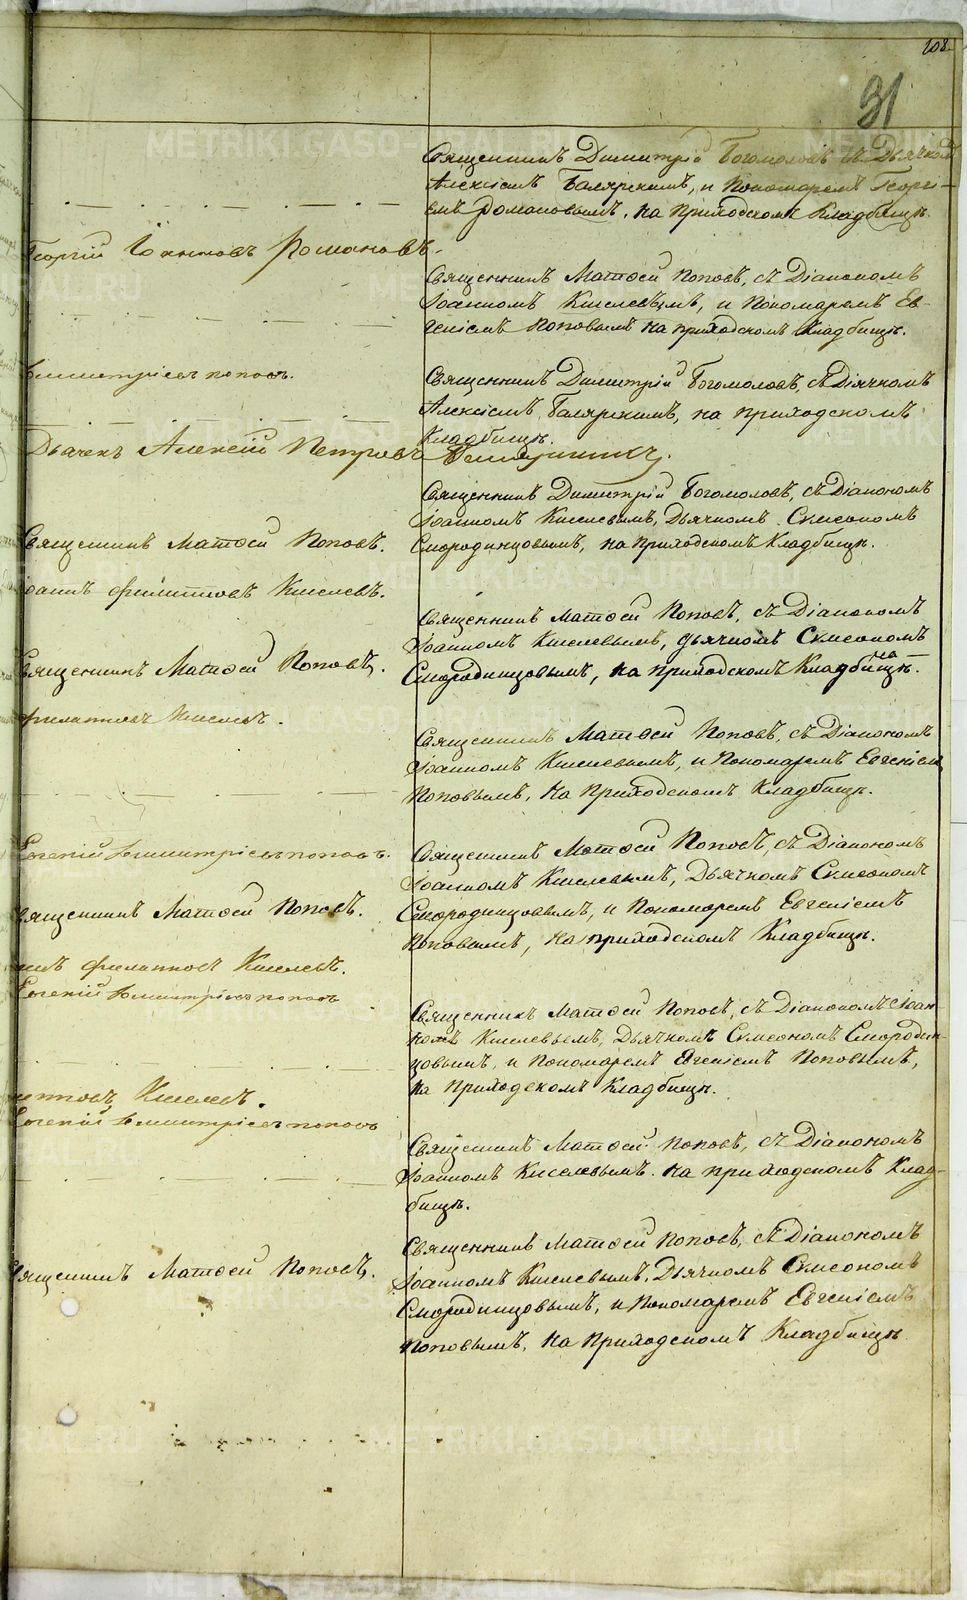 108.
31
Священникъ Димитрій Богомоловъ съ Дьячкомъ
Алексіемъ Баляркинымъ, и Пономаремъ Георгі-
емъ Романовымъ, на приходскомъ кладбищѣ.
Георгій Іоанновъ Романовъ.
Священникъ Матѳей Поповъ, съ Діакономъ
Іоанномъ Киселевымъ, и Пономаремъ Ев-
геніемъ Поповымъ на приходскомъ кладбищѣ.
Димитріевъ поповъ.
Священникъ Димитрій Богомоловъ, съ Діячкомъ
Алексіемъ на приходскомъ
кладбищѣ.
Дьячекъ Алексій Петровъ
Священникъ Димитрій Богомоловъ, съ Діакономъ
Іоанномъ Киселевымъ, Дьячкомъ Симеономъ
Смородинцовымъ, на приходскомъ кладбищѣ.
Священникъ Матѳей Поповъ.
Іоаннъ Филипповъ Киселевъ.
Священникъ Матѳей Поповъ, съ Діакономъ
Іоанномъ Киселевымъ, дьячкомъ Симеономъ
Смородинцовымъ, на приходскомъ кладбищѣ.
Священникъ Матѳей Поповъ.
Филипповъ Киселевъ.
Священникъ Матѳей Поповъ, съ Діакономъ
Іоанномъ Киселевымъ, и Пономаремъ Евгеніемъ
Поповымъ, на приходскомъ кладбищѣ.
Евгеній Димитріевъ поповъ.
Священникъ Матѳей Поповъ, съ Діакономъ
Іоанномъ Киселевымъ, Дьячкомъ Симеономъ
Смородинцовымъ, и Пономаремъ Евгеніемъ
Поповымъ, на приходскомъ кладбищѣ.
Священникъ Матѳей Поповъ.
Филипповъ Киселевъ.
Евгеній Димитріевъ поповъ
Священникъ Матѳей Поповъ, съ Діакономъ Іоан-
номъ Киселевымъ, Дьячкомъ Симеономъ Смородин-
цовымъ, и Пономаремъ Евгеніемъ Поповымъ,
на приходскомъ кладбищѣ.
Киселевъ.
Евгеній Димитріевъ поповъ
Священникъ Матѳей Поповъ, съ Діакономъ
Іоанномъ Киселевымъ на приходскомъ клад-
бищѣ.
Священникъ Матѳей Поповъ.
Священникъ Матѳей Поповъ, съ Діакономъ
Іоанномъ Киселевымъ, Дьячкомъ Симеономъ
Смородинцовымъ, и Пономаремъ Евгеніемъ
Поповымъ, на приходскомъ кладбищѣ.
METRIKI.GASO-URAL.RU